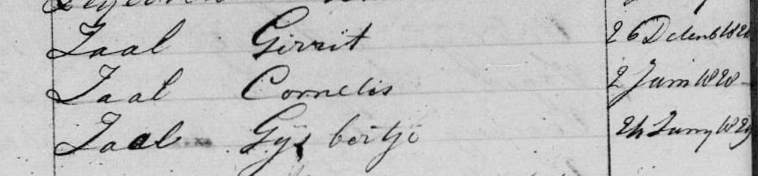 Zaal Gerrit 26 Decemb 182
Zaal Cornelis 2 Juni 1828
Zaal Gijsbertje 24 Juny 1829